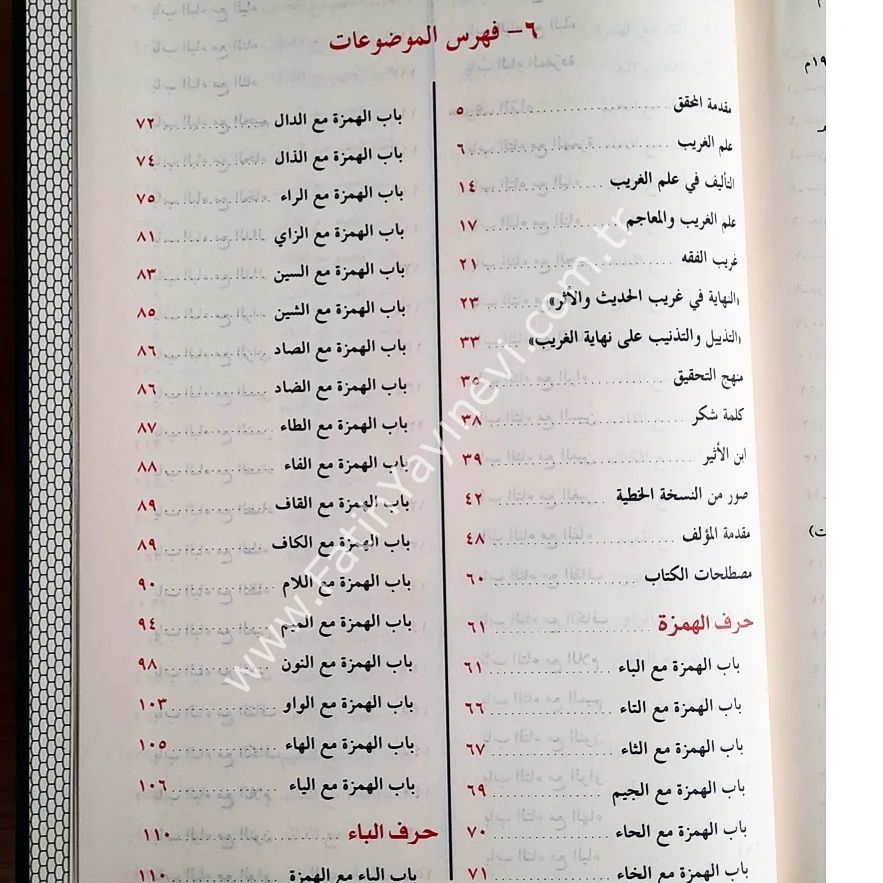 ٦- فهرس الموضوعات
مقدمة المحقق ٥
علم الغريب ٦
التأليف في علم الغريب ١٤
علم الغريب والمعاجم ١٧
غريب الفقه ٢١
«النهاية في غريب الحديث والأثر» ٢٣
«التذييل والتذنيب على نهاية الغريب» ٣٣
منهج التحقيق ٣٥
كلمة شكر ٣٨
ابن الأثير ٣٩
صور من النسخة الخطية ٤٢
مقدمة المؤلف ٤٨
مصطلحات الكتاب ٦٠
حرف الهمزة ٦١
باب الهمزة مع الباء ٦١
باب الهمزة مع التاء ٦٦
باب الهمزة مع الثاء ٦٧
باب الهمزة مع الجيم ٦٩
باب الهمزة مع الحاء ٧٠
باب الهمزة مع الخاء ٧١
باب الهمزة مع الدال ٧٢
باب الهمزة مع الذال ٧٤
باب الهمزة مع الراء ٧٥
باب الهمزة مع الزاي ٨١
باب الهمزة مع السين ٨٣
باب الهمزة مع الشين ٨٥
باب الهمزة مع الصاد ٨٦
باب الهمزة مع الضاد ٨٦
باب الهمزة مع الطاء ٨٧
باب الهمزة مع الفاء ٨٨
باب الهمزة مع القاف ٨٩
باب الهمزة مع الكاف ٨٩
باب الهمزة مع اللام ٩٠
باب الهمزة مع الميم ٩٤
باب الهمزة مع النون ٩٨
باب الهمزة مع الواو ١٠٣
باب الهمزة مع الهاء ١٠٥
باب الهمزة مع الياء ١٠٦
حرف الباء ١١٠
باب الباء مع الهمزة ١١٠
www.FatihYayinevi.com.tr